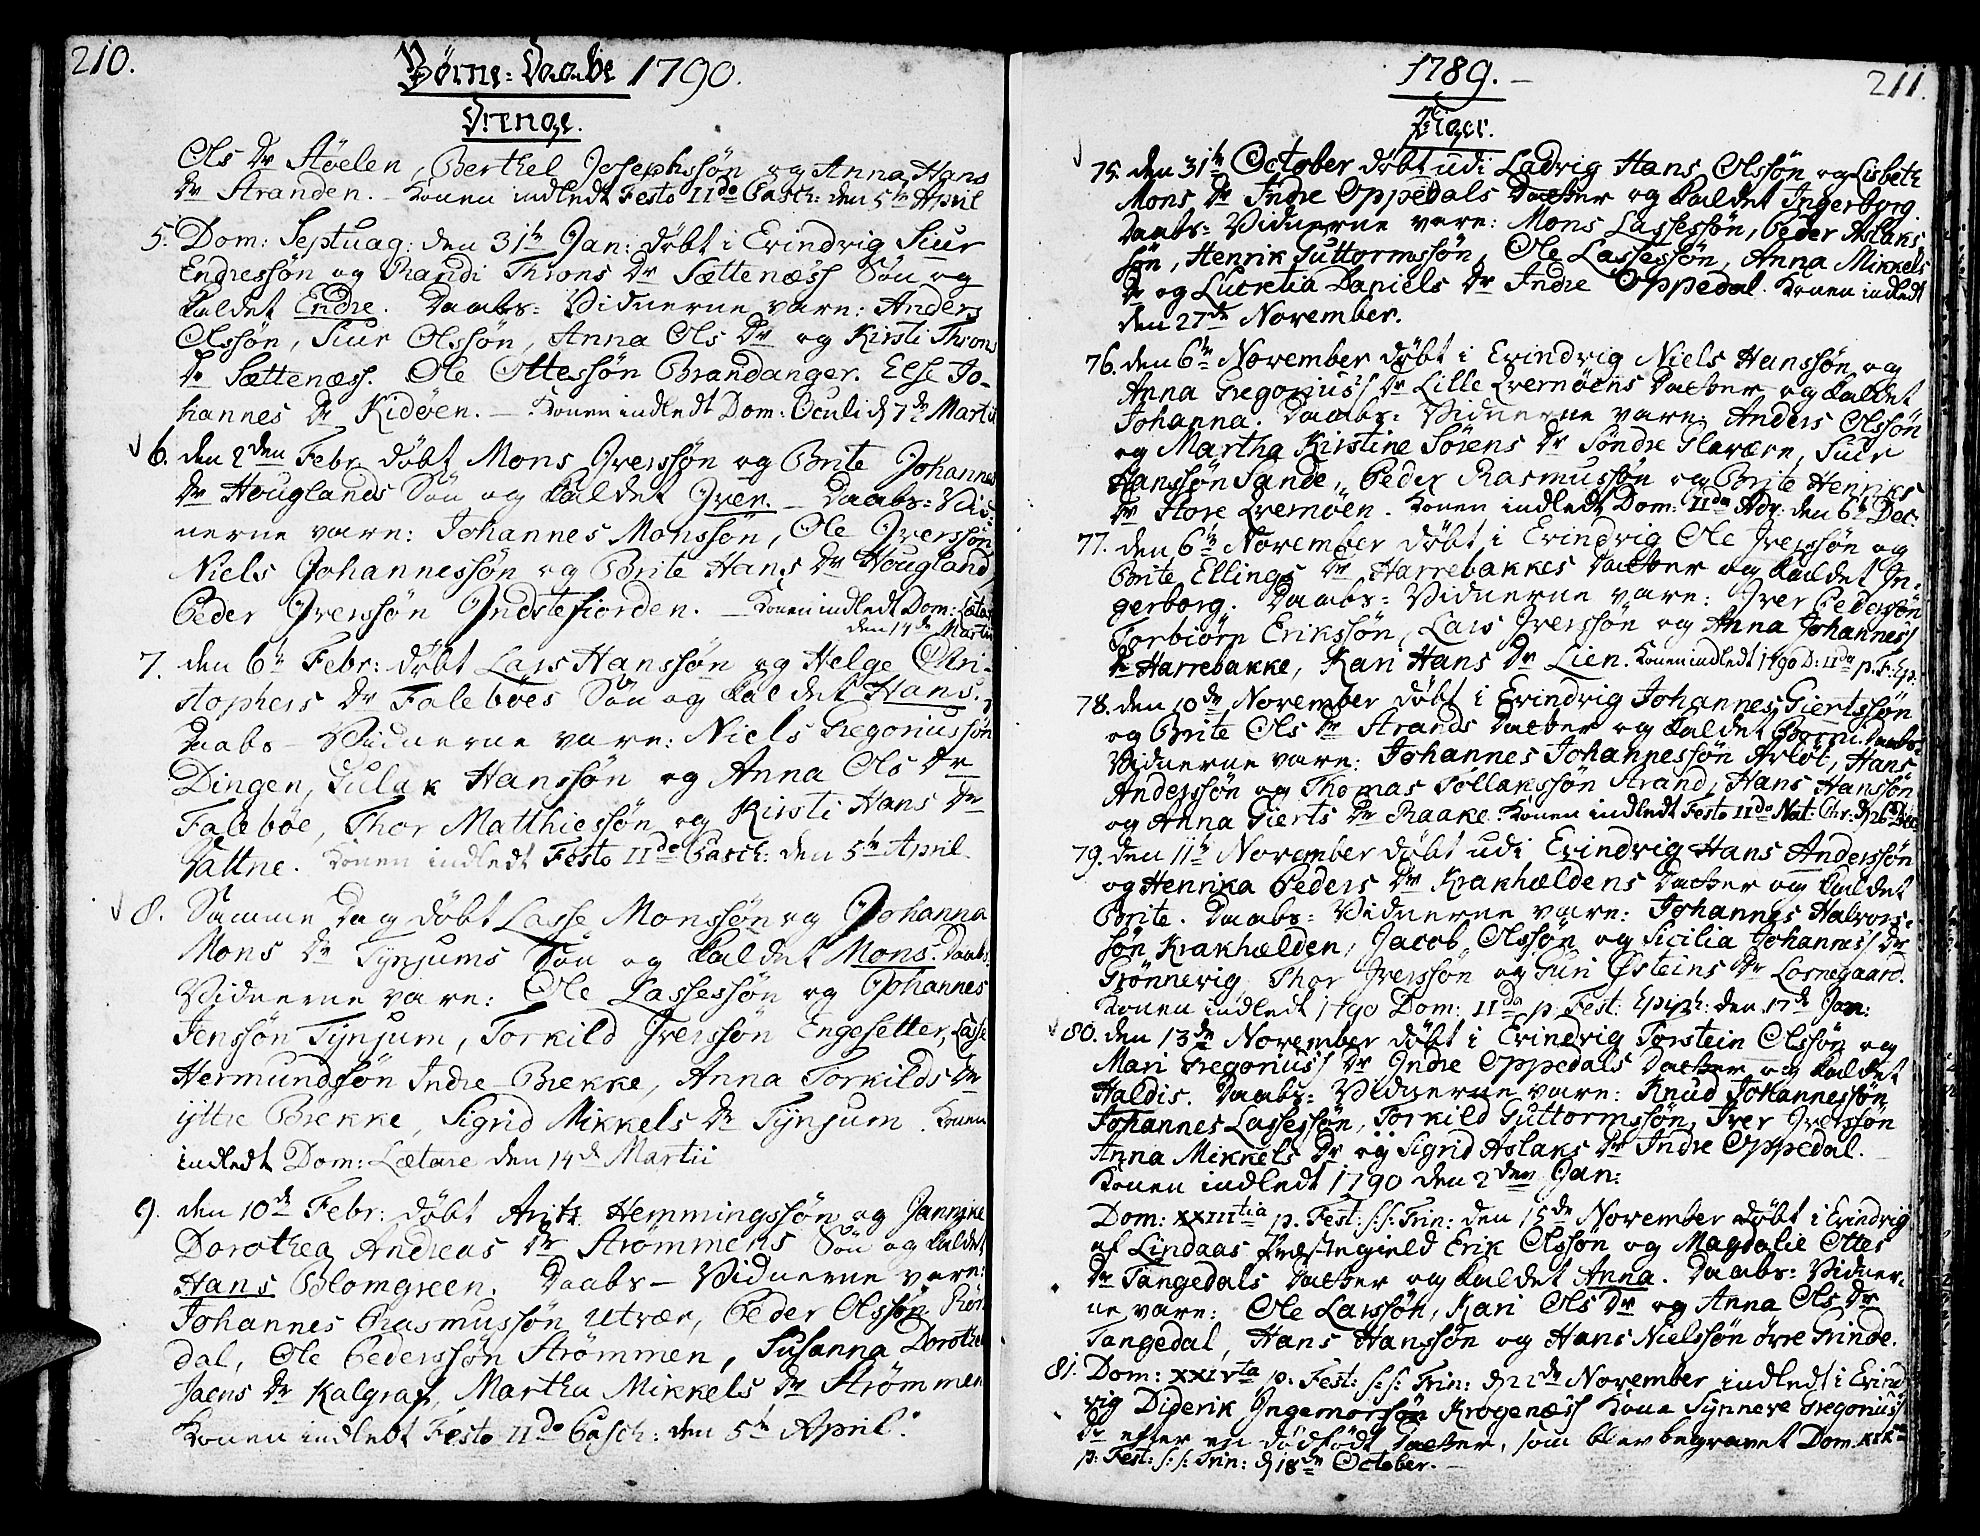 210.
Børne-Daabe 1790.
Drenge.
Ols Dr Støelen, Berthel Josephssøn og Anna Hans
Dr Stranden. - Konen indledt Festo IIdo Pasch: den 5te April
5. Dom: Septuag: den 31te Jan: døbt i Evindvig Siur
Endressøn og Randi Throns Dr Sættenæss Søn og
kaldet Endre. Daabs-Vidnerne vare: Anders
Olssøn, Siur Olssøn, Anna Ols Dr og Kirsti Throns
Dr Sættenæss. Ole Ottessøn Brandanger. Else Jo-
hannes Dr Kidøen. - Konen indledt Dom: Oculi d 7de Martii
6. den 2den Febr døbt Mons Iverssøn og Brite Johannes
Dr Houglands Søn og kaldet Iver. - Daabs-Vid-
nerne vare: Johannes Monssøn, Ole Iverssøn
Niels Johannessøn og Brite Hans Dr Hougland,
Peder Iverssøn Indstefiorden. - Konen indledt Dom: Lætare
den 14de Martii
7. den 6te Febr: døbt Lars Hanssøn og Helge Chri-
stophers Dr Falebøes Søn og kaldet Hans.
Daabs-Vidnerne vare: Niels Gregoriussøn
Dingen, Gulak Hanssøn og Anna Ols Dr
Falebøe, Thor Matthiessøn og Kirsti Hans Dr
Vattne. Konen indledt Festo IIdo Pasch: den 5te April.
8. Samme Dag døbt Lasse Monssøn og Johanna
Mons Dr Tynjums Søn og kaldet Mons. Daabs-
Vidnerne vare: Ole Lassessøn og Johannes
Jenssøn Tynjum, Torkild Iverssøn Engesetter, Lasse
Hermundssøn Indre Brekke, Anna Torkilds Dr
ijttre Brekke, Sigrid Mikkels Dr Tynjum. Konen
indledt Dom: Lætare den 14de Martii
9. den 10de Febr: døbt Hemmingssøn og Jannike
Dorothea Andreas Dr Strømmens Søn og kaldet
Hans Blomgreen. Daabs-Vidnerne vare:
Johannes Rasmussøn Utvær, Peder Olssøn
dal, Ole Pederssøn Strømmen, Susanna Dorothea
Jacns Dr Kalgraf, Martha Mikkels Dr Strømmen
Konen indledt Festo IIdo Pasch: den 5te April.
1789.
211.
Piger.
75. den 31te October døbt udi Ladvig Hans Olssøn og Lisbeth
Mons Dr Indre Oppedals Datter og kaldet Ingerborg.
Daabs-Vidnerne vare: Mons Lassessøn, Peder Aslaks
søn, Henrik Guttormssøn, Ole Lassessøn, Anna Mikkels
Dr og Lucretia Daniels Dr Indre Oppedal. Konen indledt
den 27de November.
76. den 6te November døbt i Evindvig Niels Hanssøn og
Anna Gregorius's Dr Lille Qvernøens Datter og kaldet
Johanna. Daabs-Vidnerne vare: Anders Olssøn
og Martha Kirstine Sørens Dr Søndre Glavære, Siur
Hanssøn Sande, Peder Rasmussøn og Brite Henriks
Dr Store Qvernøen. Konen indledt Dom: IIda Adv: den 6te Dec:
77. den 6te November døbt i Evindvig Ole Iverssøn og
Brite Ellings Dr Harrebakkes Datter og kaldet In-
gerborg. Daabs-Vidnerne vare: Iver Pederssøn
Torbiørn Erikssøn, Lars Iverssøn og Anna Johannes's
Dr Harrebakke, Kari Hans Dr Lien. Konen indledt 1790 D: IIda p. F. Ep:
78. den 10de November døbt i Evindvig Johannes Giertssøn
og Brite Ols Dr Strands Datter og kaldet Daabs-
Vidnerne vare: Johannes Johannessøn Arløt, Hans
Anderssøn og Thomas Collanssøn Strand, Hans Hanssøn
og Anna Gierts Dr Raake. Konen indledt Festo IIdo Nat: Chr: d 26 Dec
79. den 11te November døbt udi Evindvig Hans Anderssøn
og Henrika Peders Dr Krakhældens Datter og kaldet
Brite. Daabs-Vidnerne vare: Johannes Halvors-
søn Krakhælden, Jacob Olssøn og Sicilia Johannes's Dr
Grønnevig, Thor Iverssøn og Guri Østeins Dr Losnegaard.
Konen indledt 1790 Dom: IIda p. Fest: Epiph: den 17de Jan:
80. den 13de November døbt i Evindvig Torstein Olssøn og
Mari Gregorius's Dr Indre Oppedals Datter og kaldet
Haldis. Daabs-Vidnerne vare: Knud Johannessøn
Johannes Lassessøn, Torkild Guttormssøn, Iver Iverssøn
Anna Mikkels Dr og Sigrid Aslaks Dr Indre Oppedal.
Konen indledt 1790 den 2den Jan:
Dom: XXIIItia p. Fest: s.s. Trin: den 15de November døbt i Evindvig
af Lindaas Præstegield Erik Olssøn og Magdalie Ottes
Dr Tangedals Datter og kaldet Anna. Daabs-Vidner-
ne vare: Ole Larssøn, Kari Ols Dr og Anna Ols Dr
Tangedal, Hans Hanssøn og Hans Nielssøn øvre Trinde.
81. Dom: XXIVta p. Fest: s.s. Trin: d 22de November indledt i Evind
vig Diderik Ingemorssøn Krogenæss Kone Synneve Gregorius's
Dr efter en dødfødt Datter, som blev begravet Dom. XIXna
p: Fest: s:s: Trin: d 18de October.